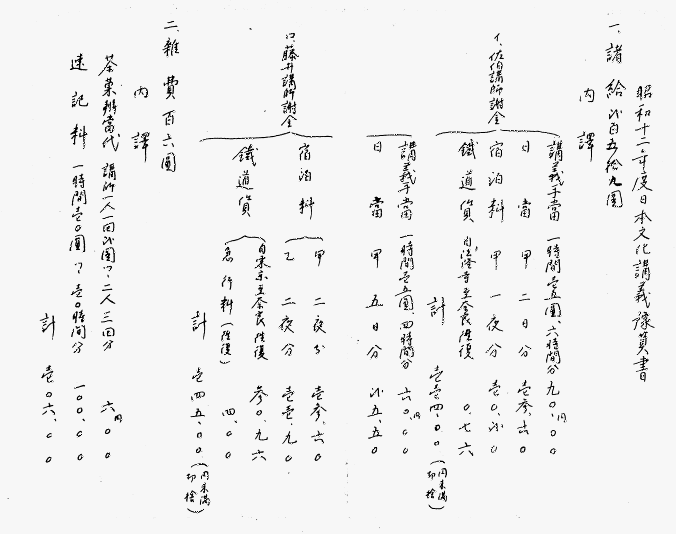 昭和十二年度日本文化講義豫算書
一、諸給 弍百五拾九圓
内譯
イ、佐伯講師謝金
講義手當 一時間壱五圓、六時間分 九〇円.〇〇
日當 甲 二日分 壱参.六〇
宿泊料 甲 一夜分 壱〇.弍〇
鐵道賃 自法隆寺至奈良往復 〇.七六
計 壱壱四.〇〇(円未満切捨)
ロ、藤井講師謝金
講義手當 一時間壱五圓、四時間分 六〇円.〇〇
日當 甲 五日分 弍五.五〇
宿泊料 甲 二夜分 壱参.六〇
乙 二夜分 壱壱.九〇
鐵道賃 自東京至奈良往復 参〇.九六
急行料(往復) 四.〇〇
計 壱四五.〇〇(円未満切捨)
二、雜費 百六圓
内譯
茶菓辨當代 講師一人一回弍圓ヅヽ 二人三回分 六円.〇〇
速記料 一時間壱〇圓ヅヽ 壱〇時間分 一〇〇.〇〇
計 壱〇六.〇〇